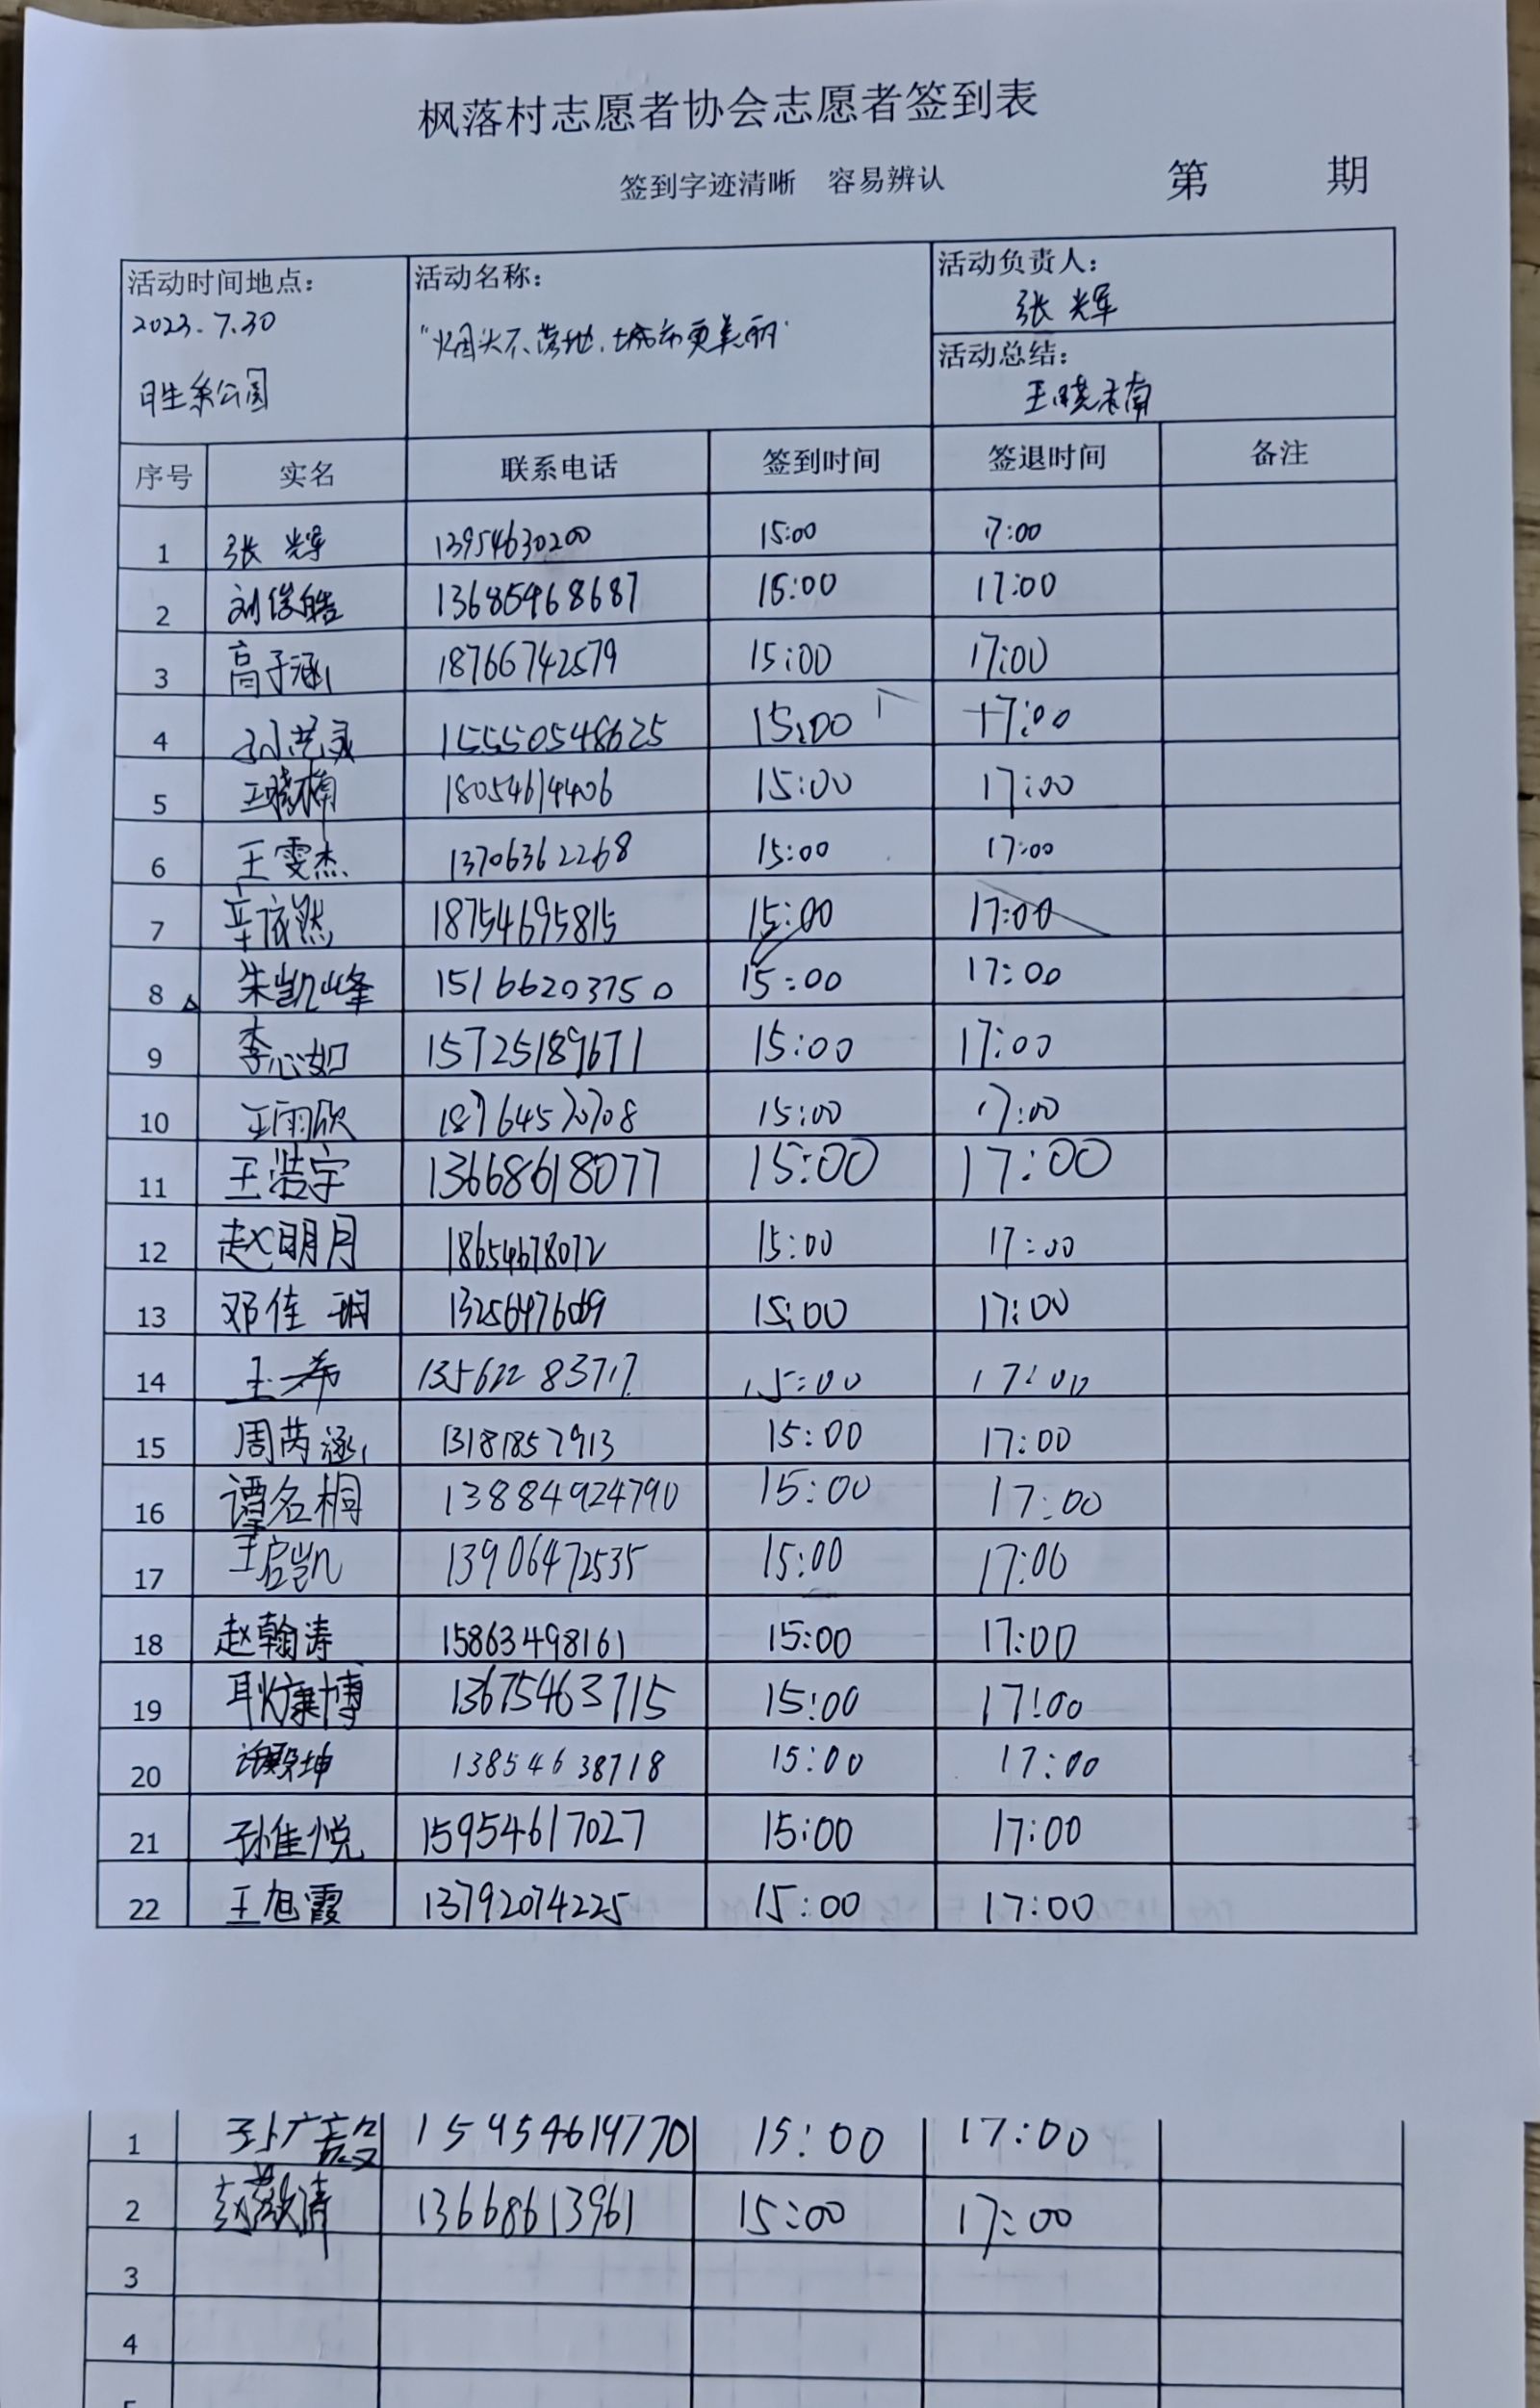 枫落村志愿者协会志愿者签到表
签到字迹清晰 容易辨认 第 期
活动时间地点： 活动名称： 活动负责人：
2023.7.30 "烟头不落地，城市更美丽" 张辉
活动总结：
公园 王晓楠
序号 实名 联系电话 签到时间 签退时间 备注
1 张辉 13954630200 15:00 17:00
2 刘俊皓 13685468687 15:00 17:00
3 高子涵 18766742579 15:00 17:00
4 15550548625 15:00 17:00
5 王晓楠 18054614406 15:00 17:00
6 王雯杰 13706362268 15:00 17:00
7 辛依然 18754695815 15:00 17:00
8 朱凯峰 15166203750 15:00 17:00
9 李心如 15725189671 15:00 17:00
10 王雨欣 18764570708 15:00 17:00
11 王浩宇 13668618077 15:00 17:00
12 赵明月 18654678072 15:00 17:00
13 邓佳玥 15:00 17:00
14 王一希 13562283717 15:00 17:00
15 周芮涵 13181857913 15:00 17:00
16 谭名桐 13884924790 15:00 17:00
17 王启凯 13906472535 15:00 17:00
18 赵翰涛 15863498161 15:00 17:00
19 耿康博 13675463715 15:00 17:00
20 许殿坤 13854638718 15:00 17:00
21 孙佳悦 15954617027 15:00 17:00
22 王旭霞 13792074225 15:00 17:00
1 15954619770 15:00 17:00
2 13668613961 15:00 17:00
3
4